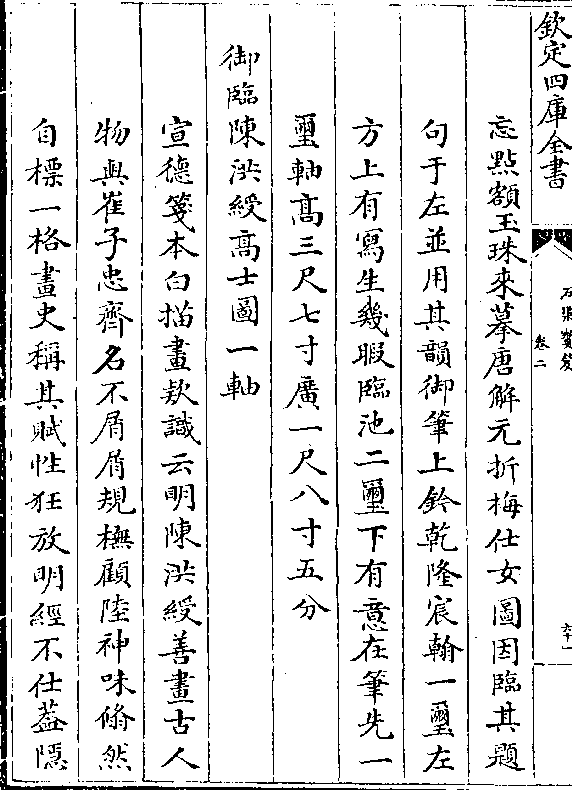 欽定四庫全書
石渠寳笈
卷二
六十一
忘㸃額玉珠來摹唐解元折梅仕女圖因臨其題
句于左並用其韻御筆上鈐乾隆宸翰一璽左
方上有寫生幾暇臨池二璽下有意在筆先一
璽軸髙三尺七寸廣一尺八寸五分
御臨陳洪綬髙士圖一軸
宣德箋本白描畫款識云明陳洪綬善畫古人
物與崔子忠齊名不屑屑規橅顧陸神味翛然
自標一格畫史稱其賦性狂放明經不仕葢隠